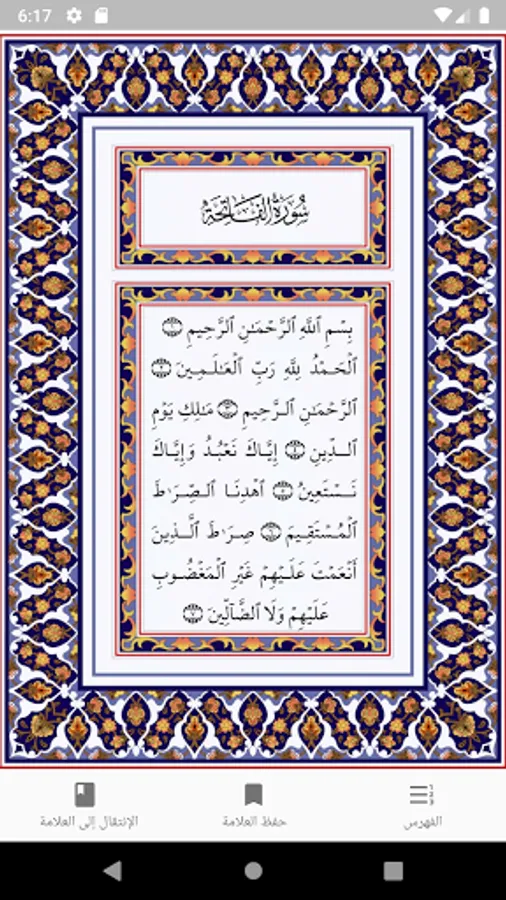 6:17
سُورَةُ الفَاتِحَةِ
بِسْمِ ٱللَّهِ ٱلرَّحْمَـٰنِ ٱلرَّحِيمِ ١
ٱلْحَمْدُ لِلَّهِ رَبِّ ٱلْعَـٰلَمِينَ ٢
ٱلرَّحْمَـٰنِ ٱلرَّحِيمِ ٣ مَـٰلِكِ يَوْمِ
ٱلدِّينِ ٤ إِيَّاكَ نَعْبُدُ وَإِيَّاكَ
نَسْتَعِينُ ٥ ٱهْدِنَا ٱلصِّرَٰطَ
ٱلْمُسْتَقِيمَ ٦ صِرَٰطَ ٱلَّذِينَ
أَنْعَمْتَ عَلَيْهِمْ غَيْرِ ٱلْمَغْضُوبِ
عَلَيْهِمْ وَلَا ٱلضَّآلِّينَ ٧
الفهرس
حفظ العلامة
الإنتقال إلى العلامة